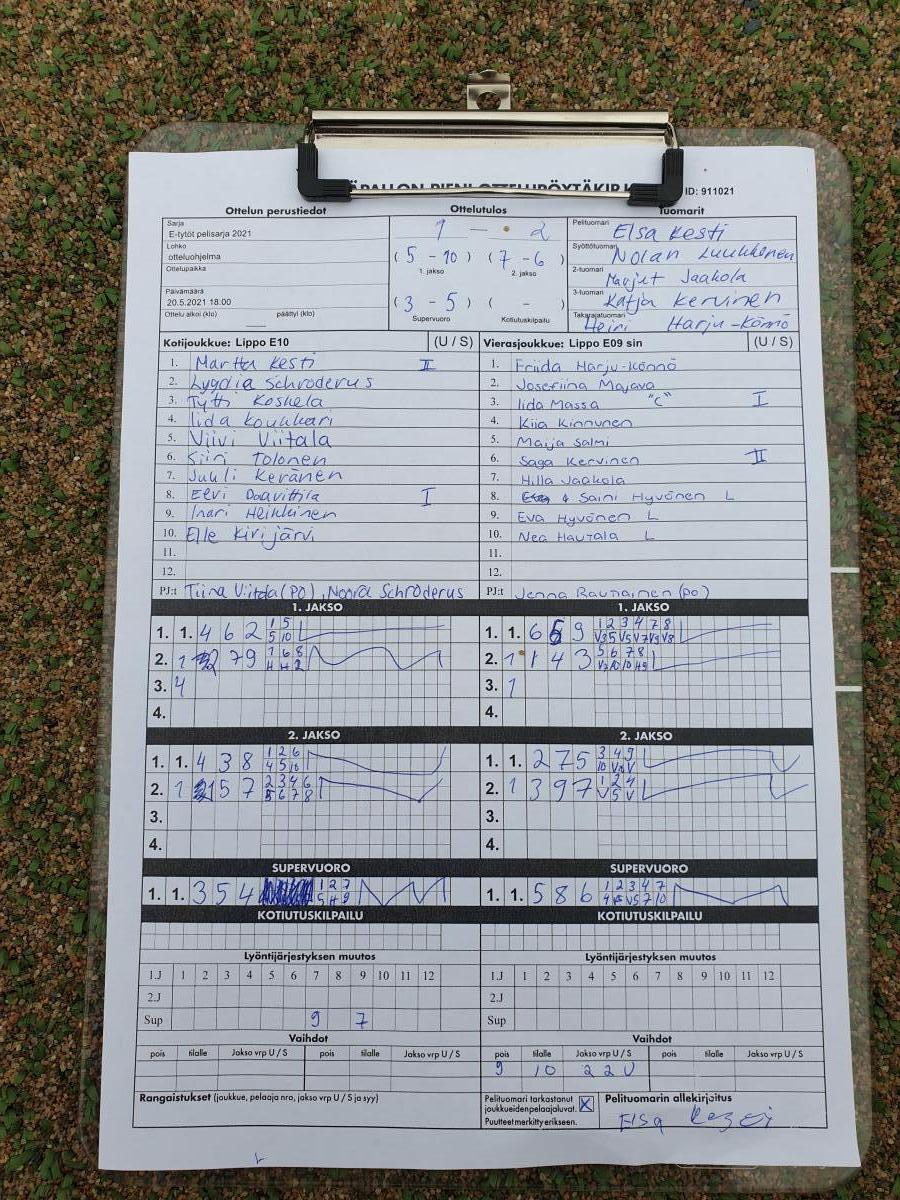 ID: 911021
Ottelun perustiedot
Ottelutulos
Tuomarit
Sarja
E-tytöt pelisarja 2021
Lohko
otteluohjelma
Ottelupaikka
Päivämäärä
20.5.2021 18:00
Ottelu alkoi (klo) päättyi (klo)
1 - 2
(5 - 10) (7 - 6)
1. jakso 2. jakso
(3 - 5) ( - )
Supervuoro Kotiutuskilpailu
Pelituomari Elsa Kesti
Syöttötuomari Nolan Luukkonen
2-tuomari Marjut Jaakola
3-tuomari Katja Kervinen
Takarajatuomari Heini Harju-Könnö
Kotijoukkue: Lippo E10 (U / S)
1. Martta Kesti II
2. Lyydia Schroderus
3. Tytti Koskela
4. Iida Koukkari
5. Viivi Viitala
6. Siiri Tolonen
7. Juuli Keränen
8. Eevi Daavittila I
9. Inari Heikkinen
10. Elle Kirijärvi
11.
12.
PJ:t Tiina Viitala (PO), Noora Schroderus
Vierasjoukkue: Lippo E09 sin (U / S)
1. Friida Harju-Könnö
2. Josefiina Majava
3. Iida Massa "C" I
4. Kiia Kinnunen
5. Maija Salmi
6. Saga Kervinen II
7. Hilla Jaakola
8. Saini Hyvönen L
9. Eva Hyvönen L
10. Nea Hautala L
11.
12.
PJ:t Jenna Rautiainen (PO)
1. JAKSO
1. 1. 4 6 2 1 5
5 10
2. 1 7 9 1 6 8
3. 4
4.
1. JAKSO
1. 1. 6 9 1 2 3 4 7 8
2. 1 1 4 3 5 6 7 8
3. 1
4.
2. JAKSO
1. 1. 4 3 8 1 2 6
4 5 10
2. 1 5 7 2 3 4 6
5 6 7 8
3.
4.
2. JAKSO
1. 1. 2 7 5 3 4 9
2. 1 3 9 7 1 2 4
V 5 V
3.
4.
SUPERVUORO
1. 1. 3 5 4 1 2 7
SUPERVUORO
1. 1. 5 8 6 1 2 3 4 7
KOTIUTUSKILPAILU
KOTIUTUSKILPAILU
Lyöntijärjestyksen muutos
1.J 1 2 3 4 5 6 7 8 9 10 11 12
2.J
Sup 9 7
Lyöntijärjestyksen muutos
1.J 1 2 3 4 5 6 7 8 9 10 11 12
2.J
Sup
Vaihdot
pois tilalle Jakso vrp U / S pois tilalle Jakso vrp U / S
Vaihdot
pois tilalle Jakso vrp U / S pois tilalle Jakso vrp U / S
9 10 2 2 U
Rangaistukset (joukkue, pelaaja nro, jakso vrp U / S ja syy)
Pelituomari tarkastanut
joukkueidenpelaajaluvat. X
Puutteet merkitty erikseen.
Pelituomarin allekirjoitus
Elsa Kesti